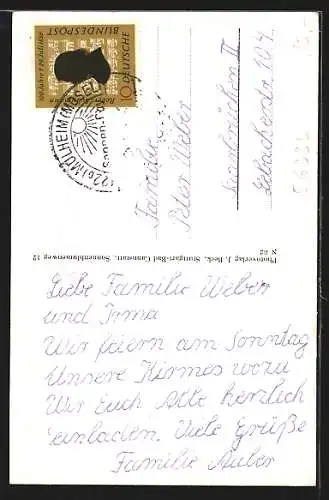 DEUTSCHE BUNDESPOST
10
(22b) MÜLHEIM (MOSEL)
Familie
Peter Weber
Saarbrücken II
Photoverlag J. Beck, Stuttgart-Bad Cannstatt, Sonnenblumenweg 12
N 82
Liebe Familie Weber
und Irma
Wir feiern am Sonntag
Unsere Kirmes wozu
Wir Euch Alle herzlich
einladen. Viele Grüße
Familie Auler